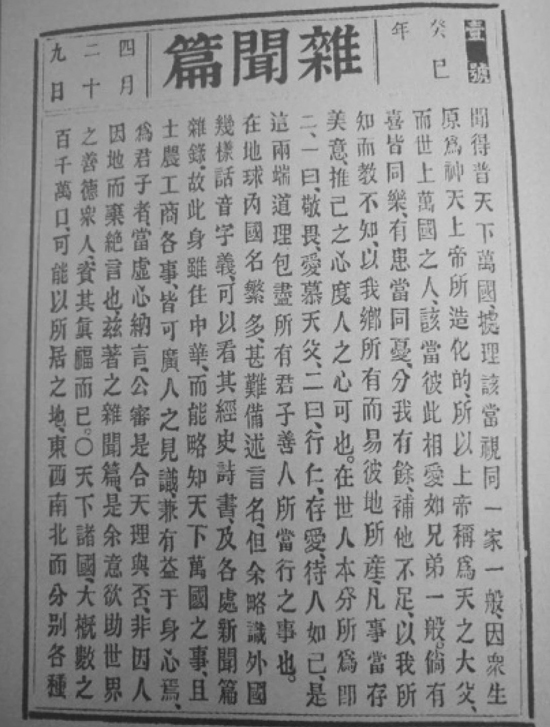 壹號
癸巳
年
雜聞篇
四月
二十
九日
聞得普天下萬國、據理該當視同一家一般、因衆生
原爲神天上帝所造化的、所以上帝稱爲天之大父、
而世上萬國之人、該當彼此相愛如兄弟一般。倘有
喜皆同樂、有患當同憂、分我有餘、補他不足、以我所
知而教不知、以我鄉所有而易彼地所産、凡事當存
美意、推己之心度人之心可也。在世人本分所爲即
二、一曰、敬畏、愛慕天父、二曰、行仁、存愛、待人如己、是
這兩端道理包盡所有君子善人所當行之事也。
在地球內國名繁多、甚難備述言名、但余略識外國
幾樣話音字義、可以看其經史詩書、及各處新聞篇
雜錄、故此身雖住中華、而能略知天下萬國之事、且
士農工商各事、皆可廣人之見識、兼有益于身心焉、
爲君子者、當虛心納言、公審是合天理與否、非因人
因地而棄絕言也、茲著之雜聞篇、是余意欲助世界
之善德衆人、賚其眞福而已。○天下諸國、大概數之
百千萬口、可能以所居之地、東西南北而分別各種